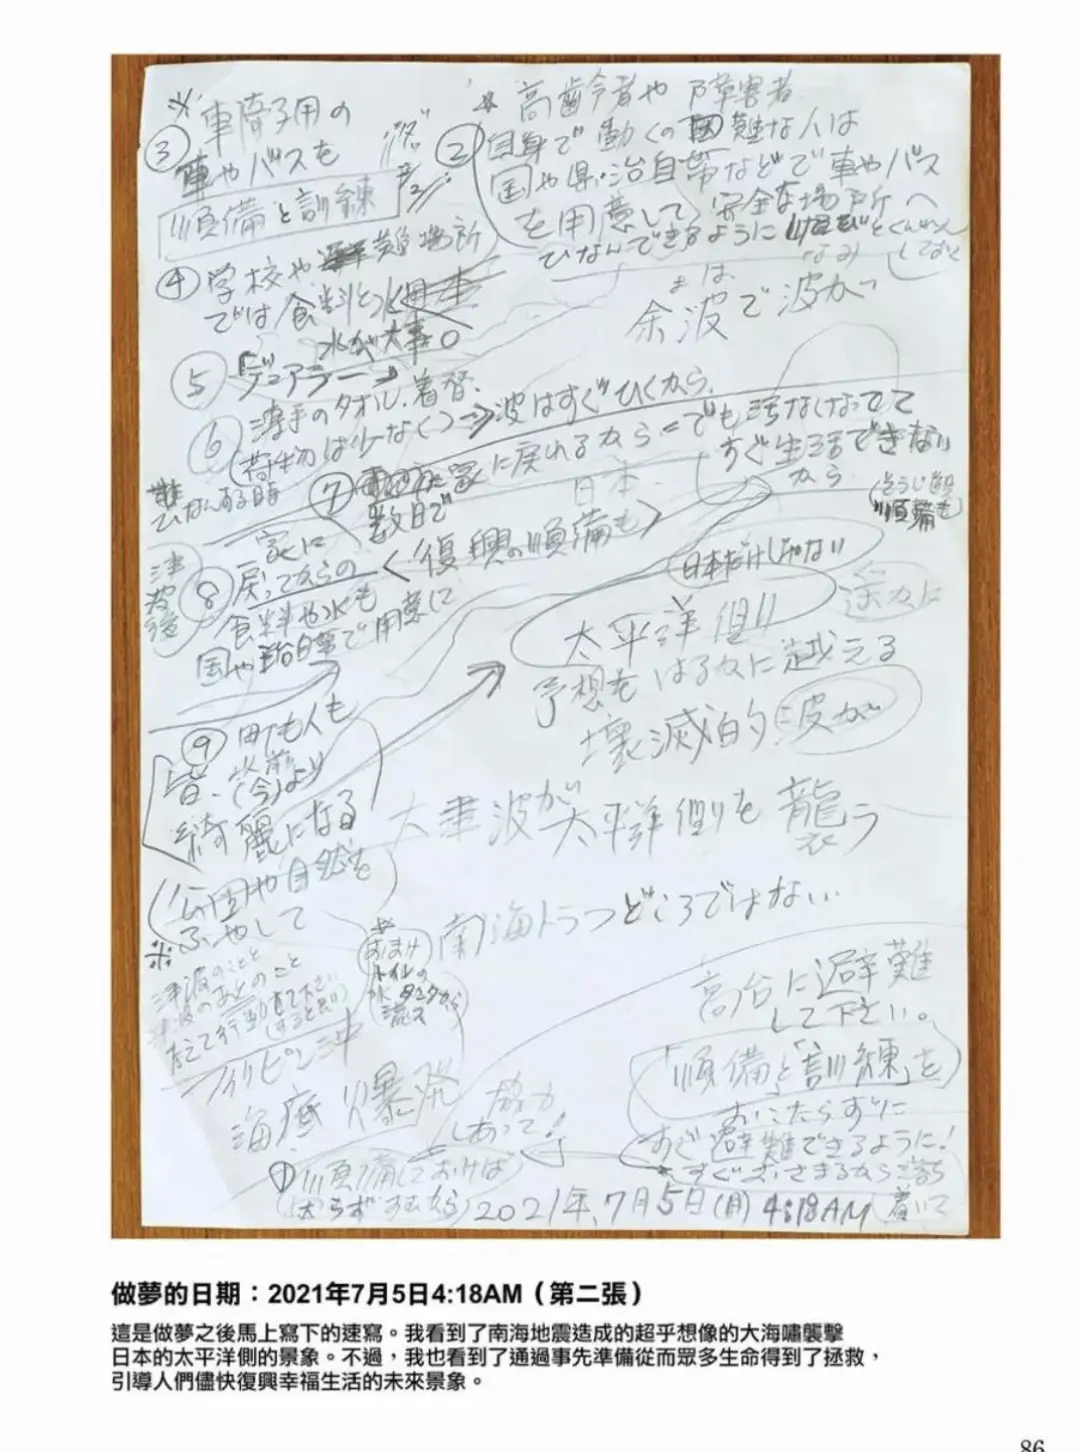 ※ 車椅子用の
③ 車やバスを
順備と訓練
※ 高齢者や障害者
② 自身で動くの困難な人は
国や県・治自帯などで車やバス
を用意して、安全な場所へ
ひなんできるように
しておく
④ 学校や避難場所
では食料と水
水が大事。
余波で波が
⑤ 「デュアラー」
⑥ 薄手のタオル、着替、
(荷物は少なく) ⇒ 波はすぐひくから、
ひなんする時
⑦ 家に戻れるから = でも活なくなってて
数日で
すぐ生活できない
から
(そうじ道具
順備も
日本
津波後
⑧ 家に
戻ってからの <復興の順備も>
食料や水も
国や
で用意して
日本だけじゃない
太平洋側
予想をはるかに越える
壊滅的 波が
⑨ 町も人も
皆、以前
(今)より
綺麗になる
大津波が太平洋側を襲う
(公園や自然を
ふやして
南海トラフどころではない
※
津波のことと
津波のあとのこと
考えて行動
※
おまけ
トイレの
水 タンクから
高台に避難
して下さい。
フィリピン沖
海底爆発
「順備と「訓練」を
おこたらずに
すぐ避難できるように!
すぐおさまるから 落ち
着いて
協力
しあって!
① 順備しておけば
2021年、7月5日(月) 4:18AM
做夢的日期:2021年7月5日4:18AM(第二張)
這是做夢之後馬上寫下的速寫。我看到了南海地震造成的超乎想像的大海嘯襲擊
日本的太平洋側的景象。不過,我也看到了通過事先準備從而眾多生命得到了拯救,
引導人們儘快復興幸福生活的未來景象。
86